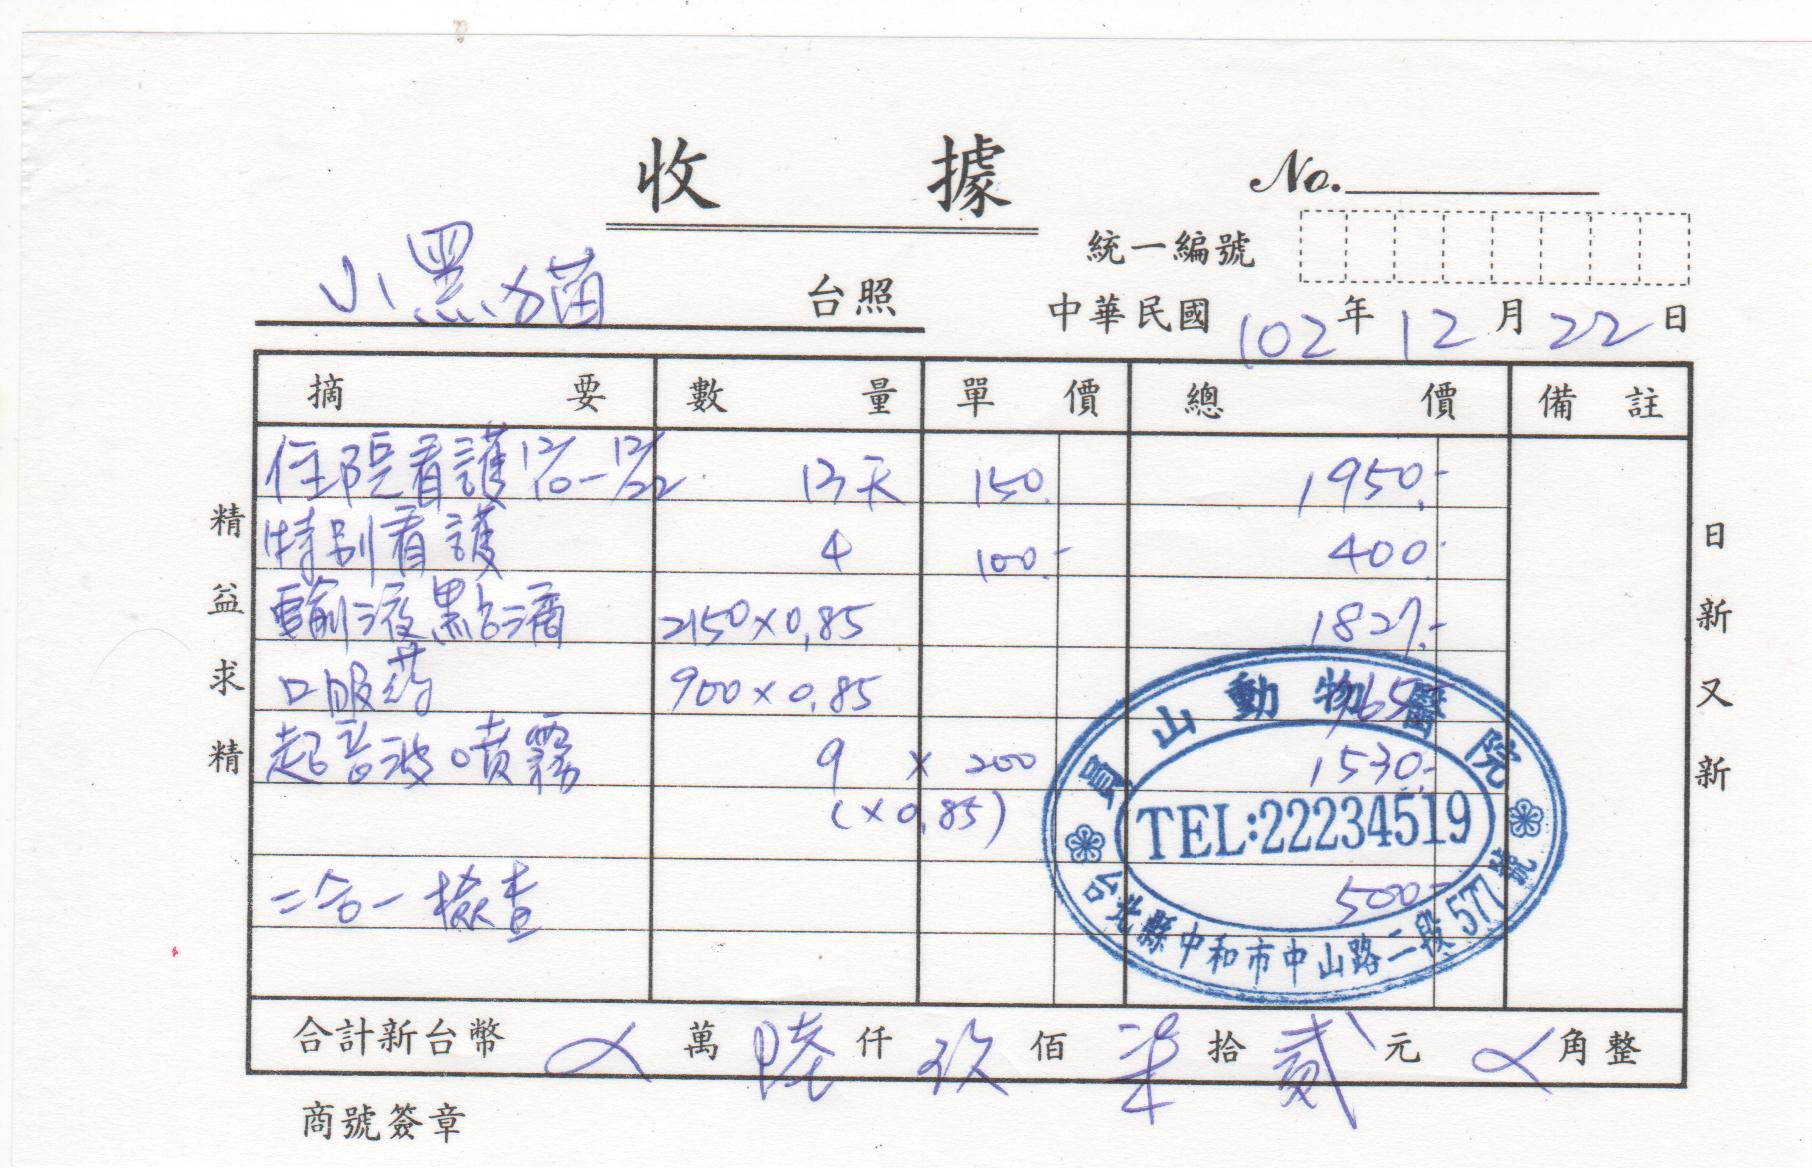 收據
No.
統一編號
小黑貓 台照
中華民國 102 年 12 月 22 日
摘要 數量 單價 總價 備註
住院看護 12/10-12/22 13天 150. 1950.-
特別看護 4 100.- 400.-
輸液點滴 2150×0.85 1827.-
口服药 900×0.85 765.-
超音波噴霧 9 × 200 1530.-
(×0.85)
二合一檢查 500.-
合計新台幣 ㄨ 萬 陸 仟 玖 佰 柒 拾 貳 元 ㄨ 角整
商號簽章
精益求精
日新又新
員山動物醫院
TEL:22234519
台北縣中和市中山路二段577號